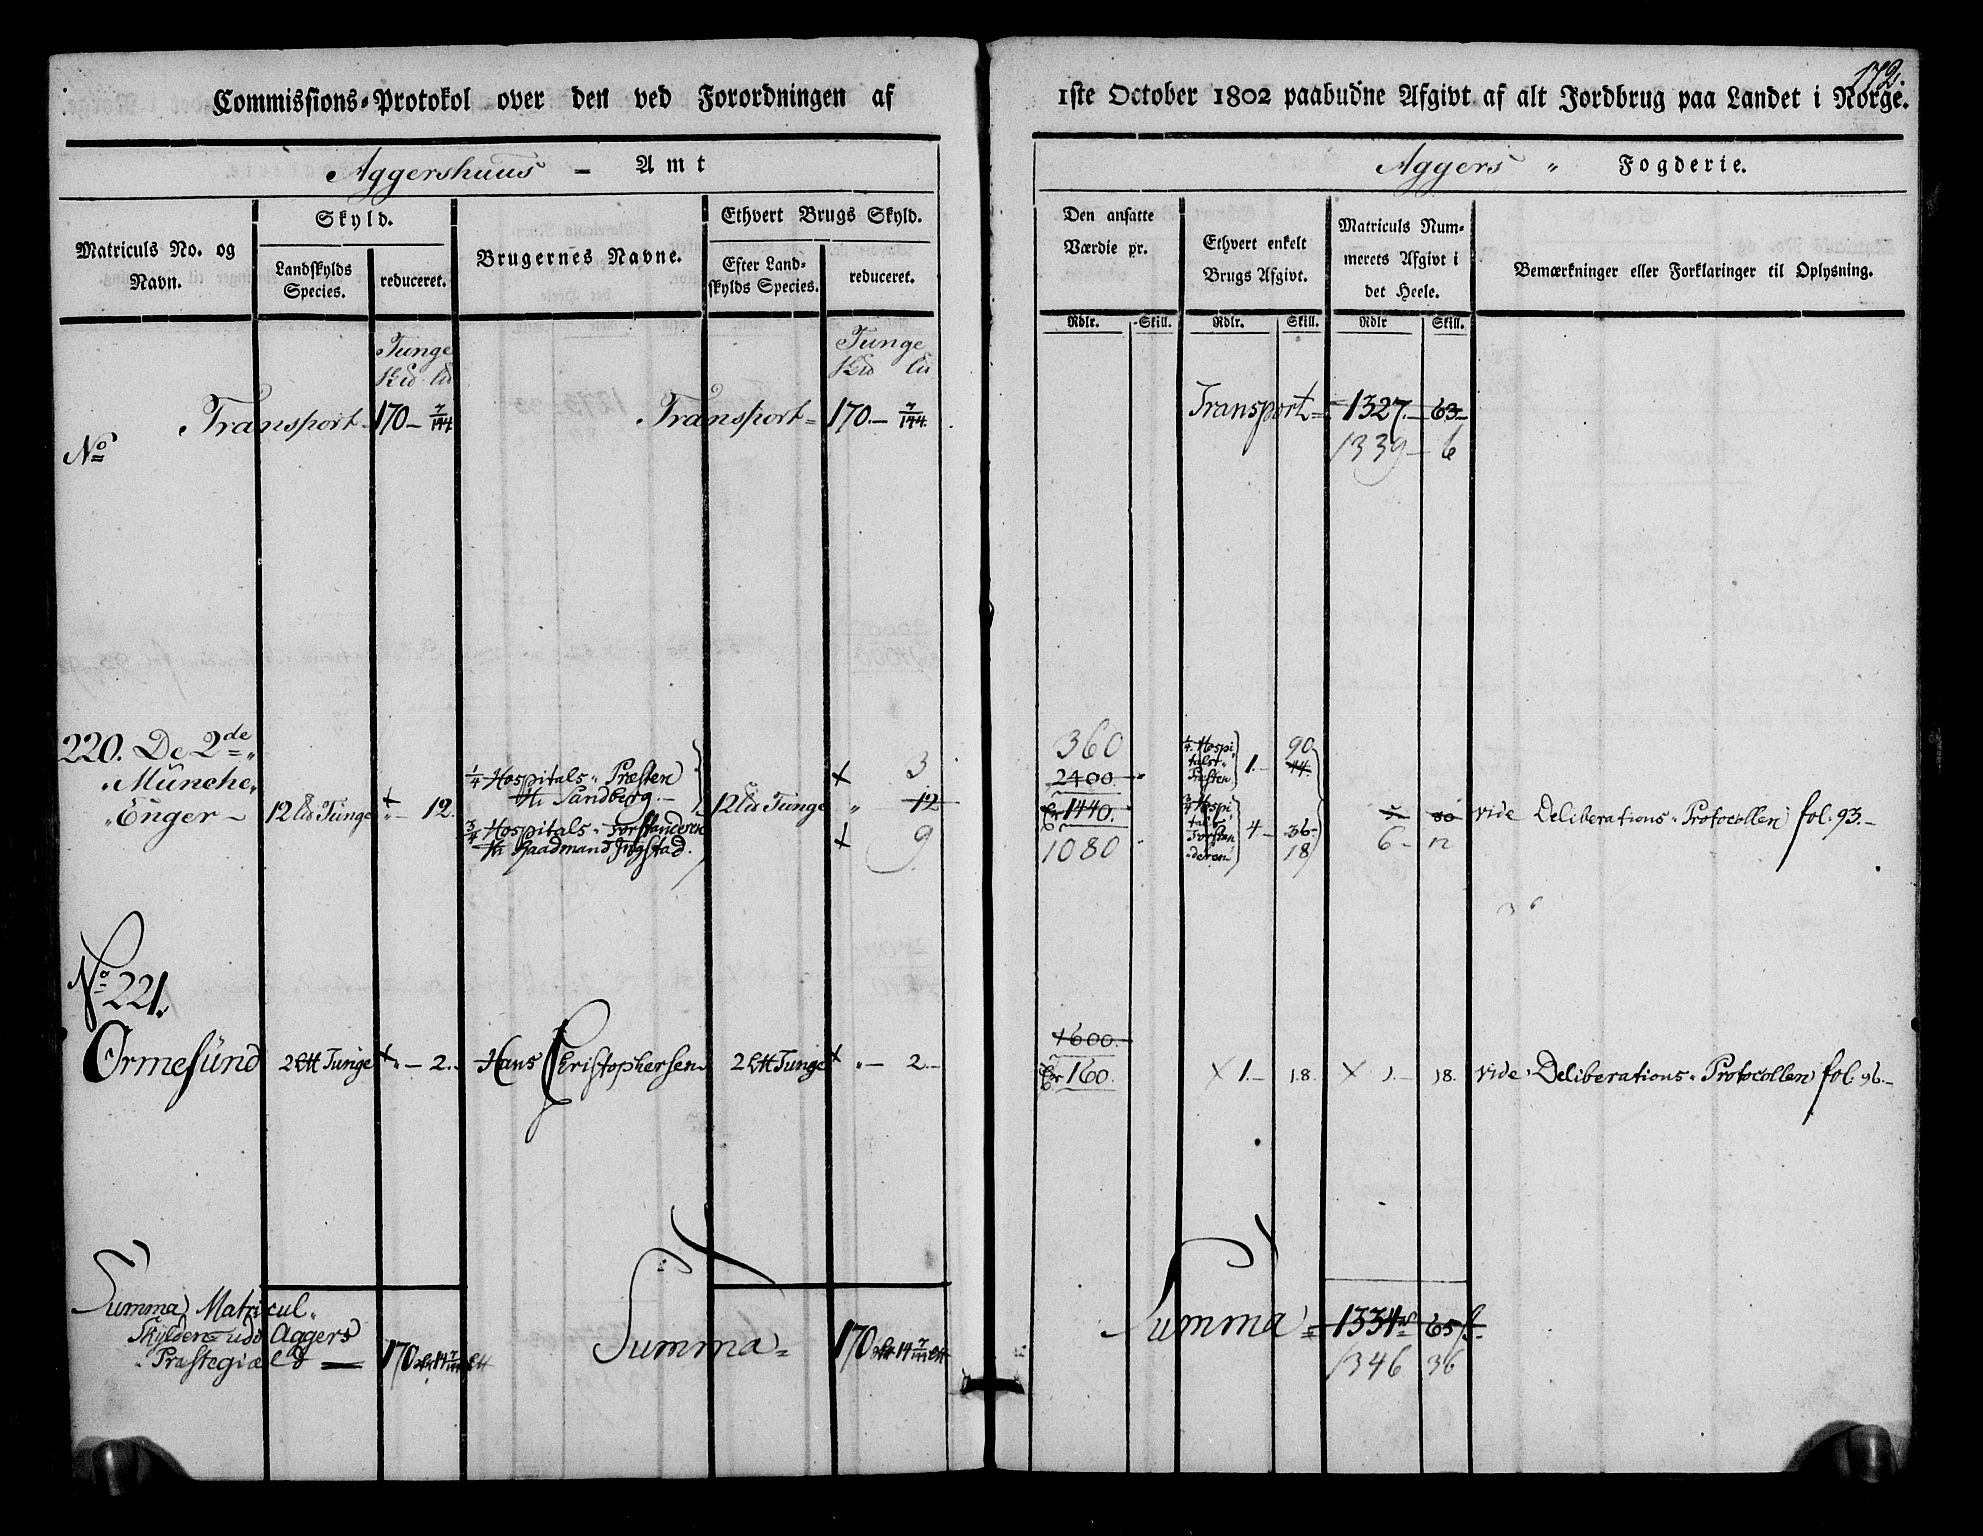 172.
Commissions-Protokol over den ved Forordningen af 1ste October 1802 paabudne Afgivt af alt Jordbrug paa Landet i Norge.
Aggershuus – Amt
Aggers „ Fogderie.
Matriculs No. og Navn.
Skyld.
Landskylds Species.
reduceret.
Brugernes Navne.
Ethvert Brugs Skyld.
Efter Landskylds Species.
reduceret.
Den ansatte Værdie pr.
Rdlr. Skill.
Ethvert enkelt Brugs Afgivt.
Rdlr. Skill.
Matriculs Nummerets Afgivt i det Heele.
Rdlr Skill.
Bemærkninger eller Forklaringer til Oplysning.
Tunge
Tunge
Transport – 170 – 7/144
Transport – 170. – 7/144
Transport = 1327. – 63 –
1339 – 6
No
220. De 2de
Münche
Enger –
12 Tunge
„ – 12.
1/4 Hospitals Præsten
Hr Sandberg. –
3/4 Hospitals Forstanderen
Hr Raadmand Ingstad.
12 Tunge
3
„ 12
9
360
2400
Er 1440.
1080
1/4. Hospitals Præsten
1. –
90
44
3/4 Hospitals Forstanderen
4 –
36 –
18
5 – 80
6 – 12
vide Deliberations Protocollen fol. 93. –
No 221.
Ormesünd
2 Tunge
„ – 2. –
Hans Christophersen
2 Tunge
„ – 2. –
1600
Er 160.
1. – 18.
1. – 18.
vide Deliberations Protocollen fol. 96. –
Summa Matricul
Skylden udi Aggers
Præstegiæld — 170
Summa = 170
Summa = 1334 65
1346 36